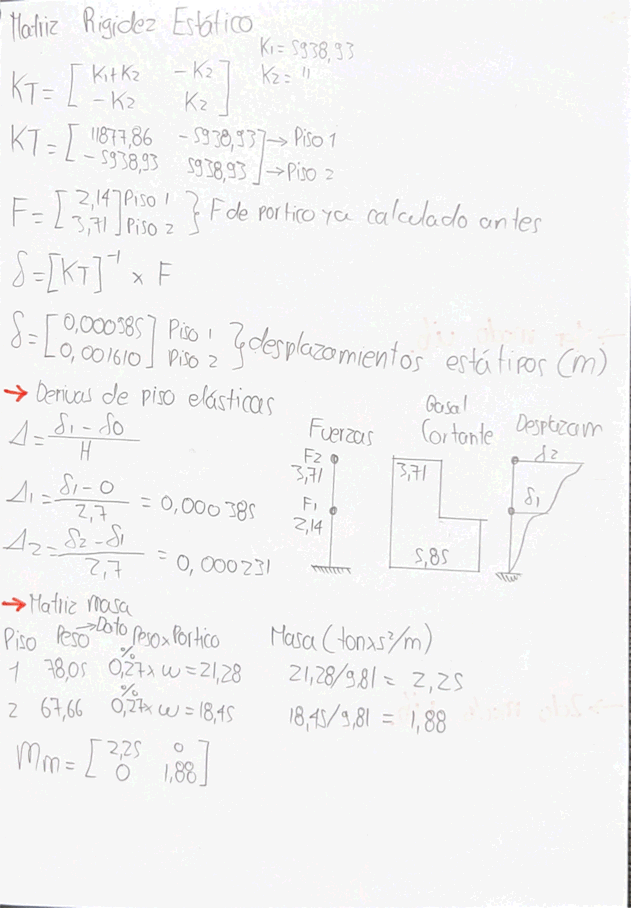 Matriz Rigidez Estático
K1 = 5938,93
K2 = "
KT = [ K1+K2 -K2
-K2 K2 ]
KT = [ 11877,86 -5938,93 ] → Piso 1
-5938,93 5938,93 ] → Piso 2
F = [ 2,14 ] Piso 1 } F de portico ya calculado antes
3,71 ] Piso 2
δ = [KT]⁻¹ x F
δ = [ 0,000985 ] Piso 1 } desplazamientos estátipos (m)
0,001610 ] Piso 2
→ Derivas de piso elásticas
Δ = δ1 - δ0 / H
Δ1 = δ1 - 0 / 2,7 = 0,000385
Δ2 = δ2 - δ1 / 2,7 = 0,000231
Fuerzas
F2
3,71
F1
2,14
Basal
Cortante
3,71
5,85
Desplazam
δ2
δ1
→ Matriz masa
Piso Peso → Dato Peso x Portico Masa (ton x s²/m)
1 78,05 0,27% x w = 21,28 21,28/9,81 = 2,25
2 67,66 0,27% x w = 18,45 18,45/9,81 = 1,88
Mm = [ 2,25 0
0 1,88 ]